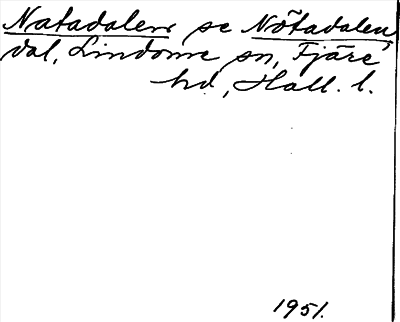 Natadalen se Nötadalen,
dal, Lindome sn, Fjäre
hd, Hall. l.
1951.